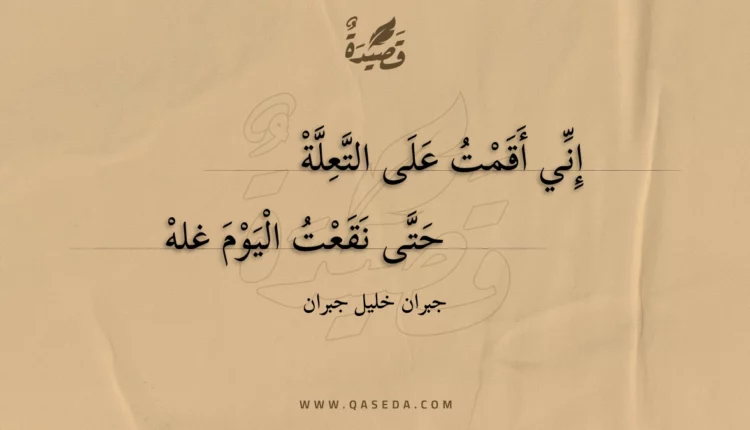 قَصِيْدَةٌ
إِنِّي أَقَمْتُ عَلَى التَّعِلَّةْ
حَتَّى نَقَعْتُ الْيَوْمَ غلهْ
جبران خليل جبران
WWW.QASEDA.COM